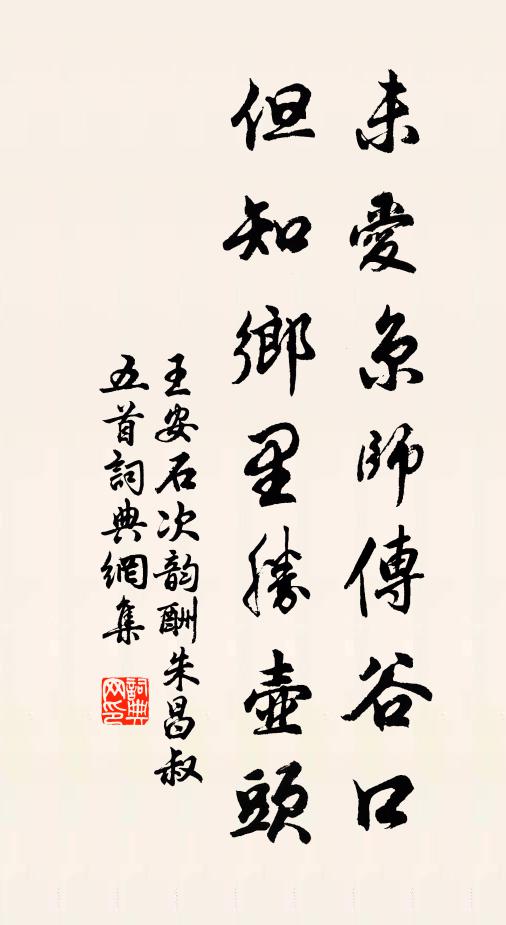 未愛京師傳谷口
但知鄉里勝壺頭
王安石次韵酬朱昌叔
五首詞典網集
詞典
网印